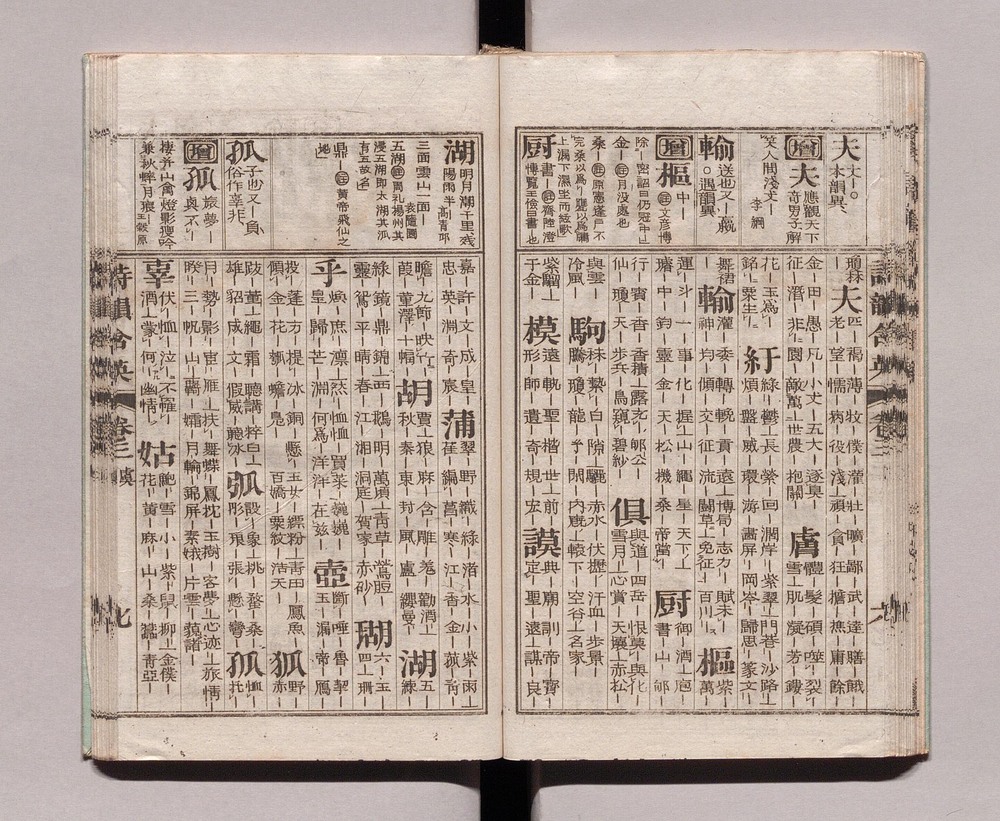 詩韻含英
卷三
夫
丈丨○
本韻異
增
夫
應觀天下
奇男子解
笑人間淺丈丨
李綱
輸
送也又丨贏
○遇韻異
增
樞
中丨
文彥博
除丨密詔曰仍冠中丨
金丨
月没處也
桑丨
原憲蓬戶不
完桑以爲丨甕以爲牖
上漏下濕坐而絃歌
厨
書丨
齊陸澄
博覽王儉曰書丨也
瓊林
夫
匹丨褐丨薄丨牧丨僕丨灌丨壯丨曠丨鄙丨武丨達丨膳丨餓丨
金丨田丨愚丨凡丨小丈丨五大丨逐臭丨
征丨潛丨非丨閫丨敵萬丨世農丨抱關丨
膚
雪丨肌丨凝丨芳丨鏤丨
花丨玉爲丨
紆
綠丨鬱丨長丨縈丨回丨澗岸丨紫翠丨門巷丨沙路丨
銘丨粟生丨
煩丨盤丨威丨環丨游丨畫屏丨岡岑丨歸思丨篆文丨
舞裙丨
輸
灌丨委丨轉丨輓丨貢丨遠丨博局丨志力丨賦未丨
樞
紫丨
神丨均丨傾丨交丨征丨流丨鬪草丨免征丨百川丨
萬丨
運丨斗丨一丨事丨化丨握丨山丨繩丨星丨天下丨
厨
御丨酒丨庖丨
璿丨中丨鈞丨靈丨金丨天丨松丨機丨桑丨帝當丨
書丨山丨郇丨
行丨賓丨香丨香積丨露充丨郇公丨
俱
與道丨四岳丨恨莫丨與化丨
仙丨瓊丨天丨步兵丨鳥窺丨碧紗丨
雪月丨心賞丨天意丨赤松丨
與雲丨
駒
秣丨縶丨白丨隙丨驪丨赤水丨伏櫪丨汗血丨步景丨
冷風丨
騰丨瓊丨龍丨予丨閑丨内廐丨轅下丨空谷丨名家丨
紫騮丨
模
遠丨執丨聖丨楷丨世丨前丨
謨
典丨廟丨訓丨帝丨賚丨
于金丨
形丨師丨遺丨奇丨規丨宏丨
定丨聖丨遠丨謀丨良丨
湖
明月湖千里殘
陽雨半
高青邱
三面雲山一面丨
袁隨園
五湖
周礼揚州其
浸五湖卽太湖其派
有五故名
鼎丨
黃帝飛仙之
地
孤
子也又丨負
俗作辜非
增
孤
旅夢丨
與不丨
棲幷山禽燈影瘦吟
兼秋蟀月痕丨
王穀原
嘉丨許丨文丨成丨皇丨
蒲
翠丨野丨織丨綠丨渚丨水丨小丨紫丨雨丨
忠丨英丨淵丨奇丨宸丨
萑丨編丨菖丨寒丨江丨香丨金丨菰丨靑丨
瞻丨九飾丨映竹丨
胡
賈丨狼丨麻丨含丨雕丨羌丨勸酒丨
湖
五丨
葭丨董澤丨十幅丨
秋丨秦丨東丨封丨風丨盧丨纓曼丨
練丨
綠丨鏡丨鼎丨錦丨西丨鵝丨明丨萬頃丨靑草丨鶯脰丨
瑚
四丨六丨玉丨
靈丨鴛丨平丨晴丨春丨江丨湘丨洞庭丨賀家丨赤砂丨
珊丨
乎
煥丨庶丨凛丨烝丨恤恤丨買菜丨巍巍丨
壺
斷丨唾丨魯丨挈丨
皇丨歸丨芒丨淵丨何爲丨洋洋丨在兹丨
玉丨漏丨帝丨鴈丨
投丨蓬丨方丨提丨冰丨銅丨懸丨玉女丨縹粉丨靑田丨鳳魚丨
狐
野丨
傾丨金丨花丨瓠丨蟾丨鳧丨百嬌丨粟紋丨浩天丨
赤丨
跋丨董丨繩丨霜丨聽講丨粹白丨
弧
設丨象丨挑丨蝥丨桑丨
孤
恤丨
雄丨貂丨成丨文丨假威丨聽冰丨
彤丨痕丨張丨懸丨彎丨
托丨
月丨勢丨影丨宦丨雁丨扶丨舞蝶丨鳳枕丨玉樹丨客夢丨心迹丨旅情丨
睽丨三丨帆丨山丨羈丨孀丨月輪丨錦屏丨素娥丨片雲丨藐諸丨
辜
伏丨恤丨泣丨不罹丨
姑
鮑丨雪丨小丨紫丨鼠丨柳丨金僕丨
酒丨蒙丨何丨幽情丨
花丨黃丨麻丨山丨桑丨蠶丨靑亞丨
詩韻含英
卷三
虞